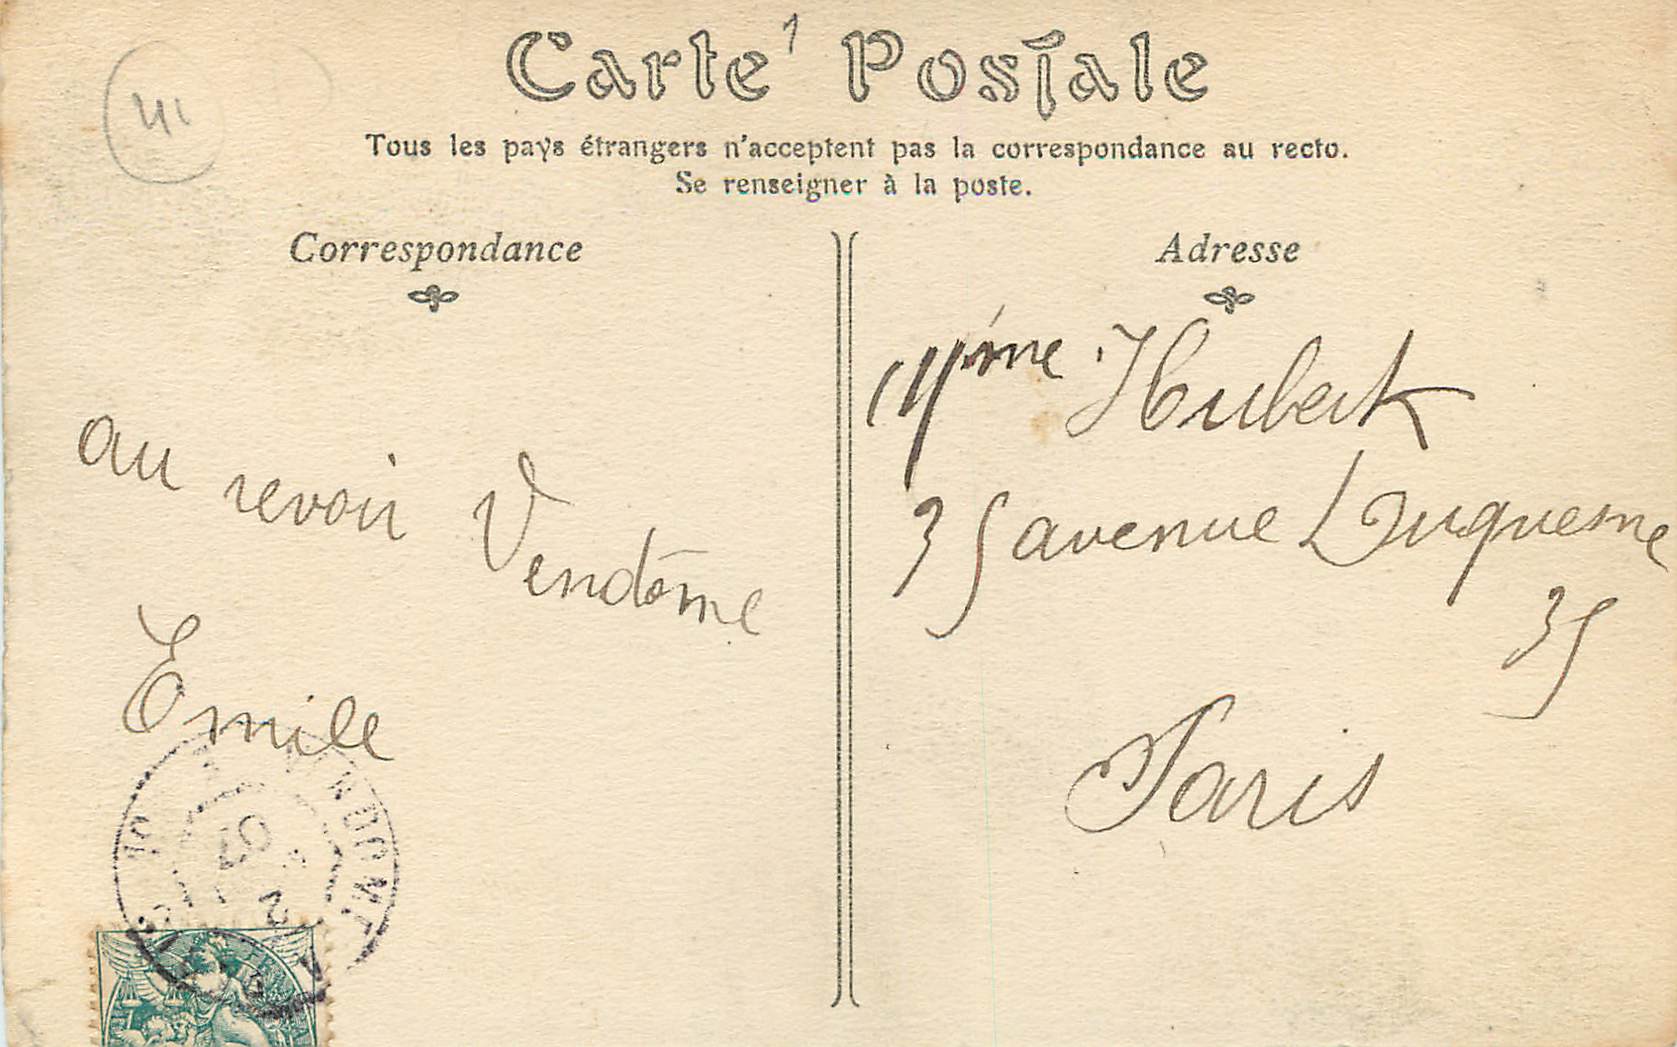 Carte Postale
41
Tous les pays étrangers n'acceptent pas la correspondance au recto.
Se renseigner à la poste.
Correspondance
au revoir Vendôme
Emile
Adresse
Mme Hubert
35 avenue Duquesne
35
Paris
07